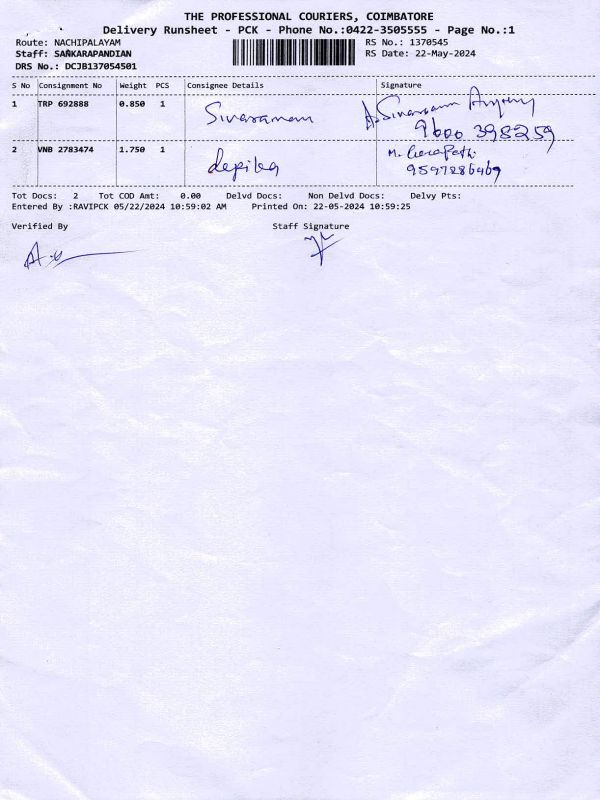 THE PROFESSIONAL COURIERS, COIMBATORE
Delivery Runsheet - PCK - Phone No.:0422-3505555 - Page No.:1
Route: NACHIPALAYAM RS No.: 1370545
Staff: SANKARAPANDIAN RS Date: 22-May-2024
DRS No.: DCJB137054501
S No Consignment No Weight PCS Consignee Details Signature
1 TRP 692888 0.850 1 Sivaraman A. Sivaraam
9600 398259
2 VNB 2783474 1.750 1 depika M.
9597286469
Tot Docs: 2 Tot COD Amt: 0.00 Delvd Docs: Non Delvd Docs: Delvy Pts:
Entered By :RAVIPCK 05/22/2024 10:59:02 AM Printed On: 22-05-2024 10:59:25
Verified By Staff Signature